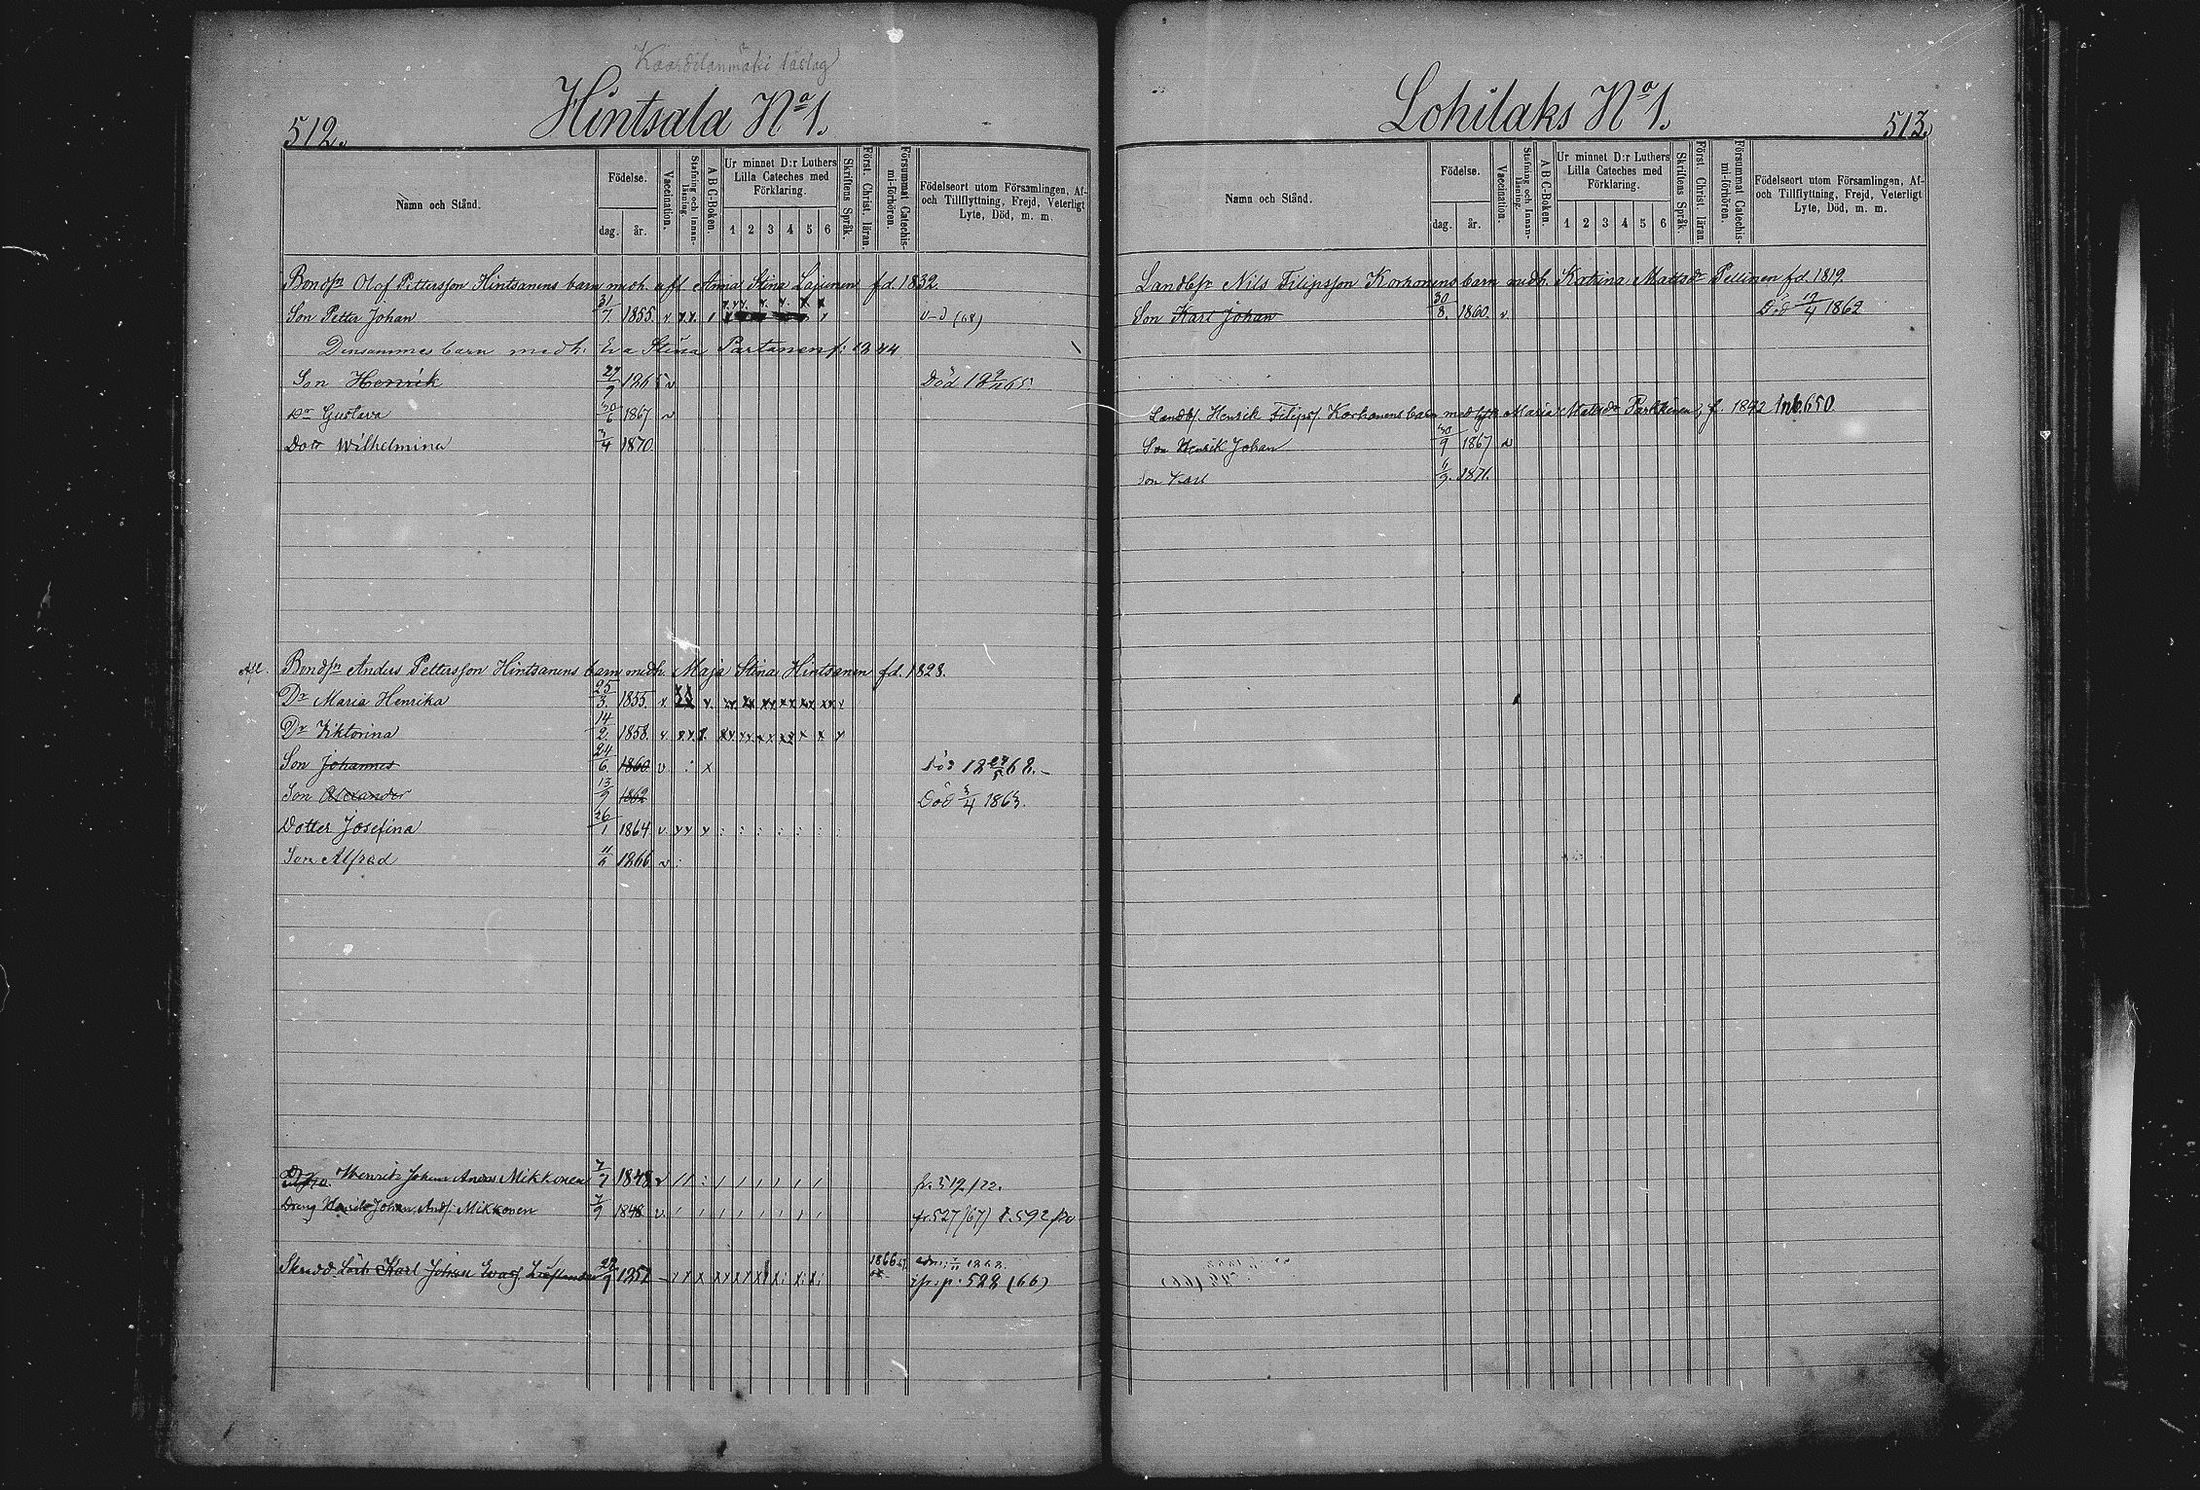 512.
Hintsala Nº 1.
Namn och Stånd.
Födelse.
dag.
år.
Vaccination.
Stafning och Innan-läsning.
A B C-Boken.
Ur minnet D:r Luthers
Lilla Cateches med
Förklaring.
1 2 3 4 5 6
Skriftens Språk.
Först. Christ. läran.
Försummat Catechis-mi-förhören.
Födelseort utom Församlingen, Af-
och Tillflyttning, Frejd, Veterligt
Lyte, Död, m. m.
Bondsn Olof Pettersson Hintsanens barn med h. afl Anna Stina Lajunen fd. 1832
Son Petter Johan 31/7 1855 v
Densammes barn med h. Eva Stina Partanen f: 1844
Son Henrik 1865 v Död
Dr Gustava 30/6 1867 v
Dottr Wilhelmina 3/4 1870
Afl. Bondsn Anders Pettersson Hintsanens barn med h. Maja Stina Hintsanen fd. 1828.
Dr Maria Henrika 25/3 1855 v
Dr Viktorina 14/2 1858 v
Son Johannes 24/6 1860 v Död
Son Alexander 13/9 1862 Död 3/4 1863.
Dotter Josefina 26/1 1864 v
Son Alfred 11/6 1866 v
Henrik Johan Anders Mikkonen 7/7 1848 v
Dreng Henrik Johan Ands. Mikkonen 7/9 1848 v fr. 527 (67) t. 592/70
Karl Johan 1866 adm: 1868.
p: 528 (66)
Lohilaks Nº 1.
513.
Namn och Stånd.
Födelse.
dag.
år.
Vaccination.
Stafning och Innan-läsning.
A B C-Boken.
Ur minnet D:r Luthers
Lilla Cateches med
Förklaring.
1 2 3 4 5 6
Skriftens Språk.
Först. Christ. läran.
Försummat Catechis-mi-förhören.
Födelseort utom Församlingen, Af-
och Tillflyttning, Frejd, Veterligt
Lyte, Död, m. m.
Landbsn Nils Filipsson Korhonens barn med h. Katrina Mattsdr Pellinen fd. 1819.
Son Karl Johan 30/8 1860 v Död 19/4 1862
Landb. Henrik Filips. Korhonens barn med Maria Matsdr Parkkinen f. 1842 Inb. 650.
Son Henrik Johan 30/9 1867 v
Son Karl 1871.